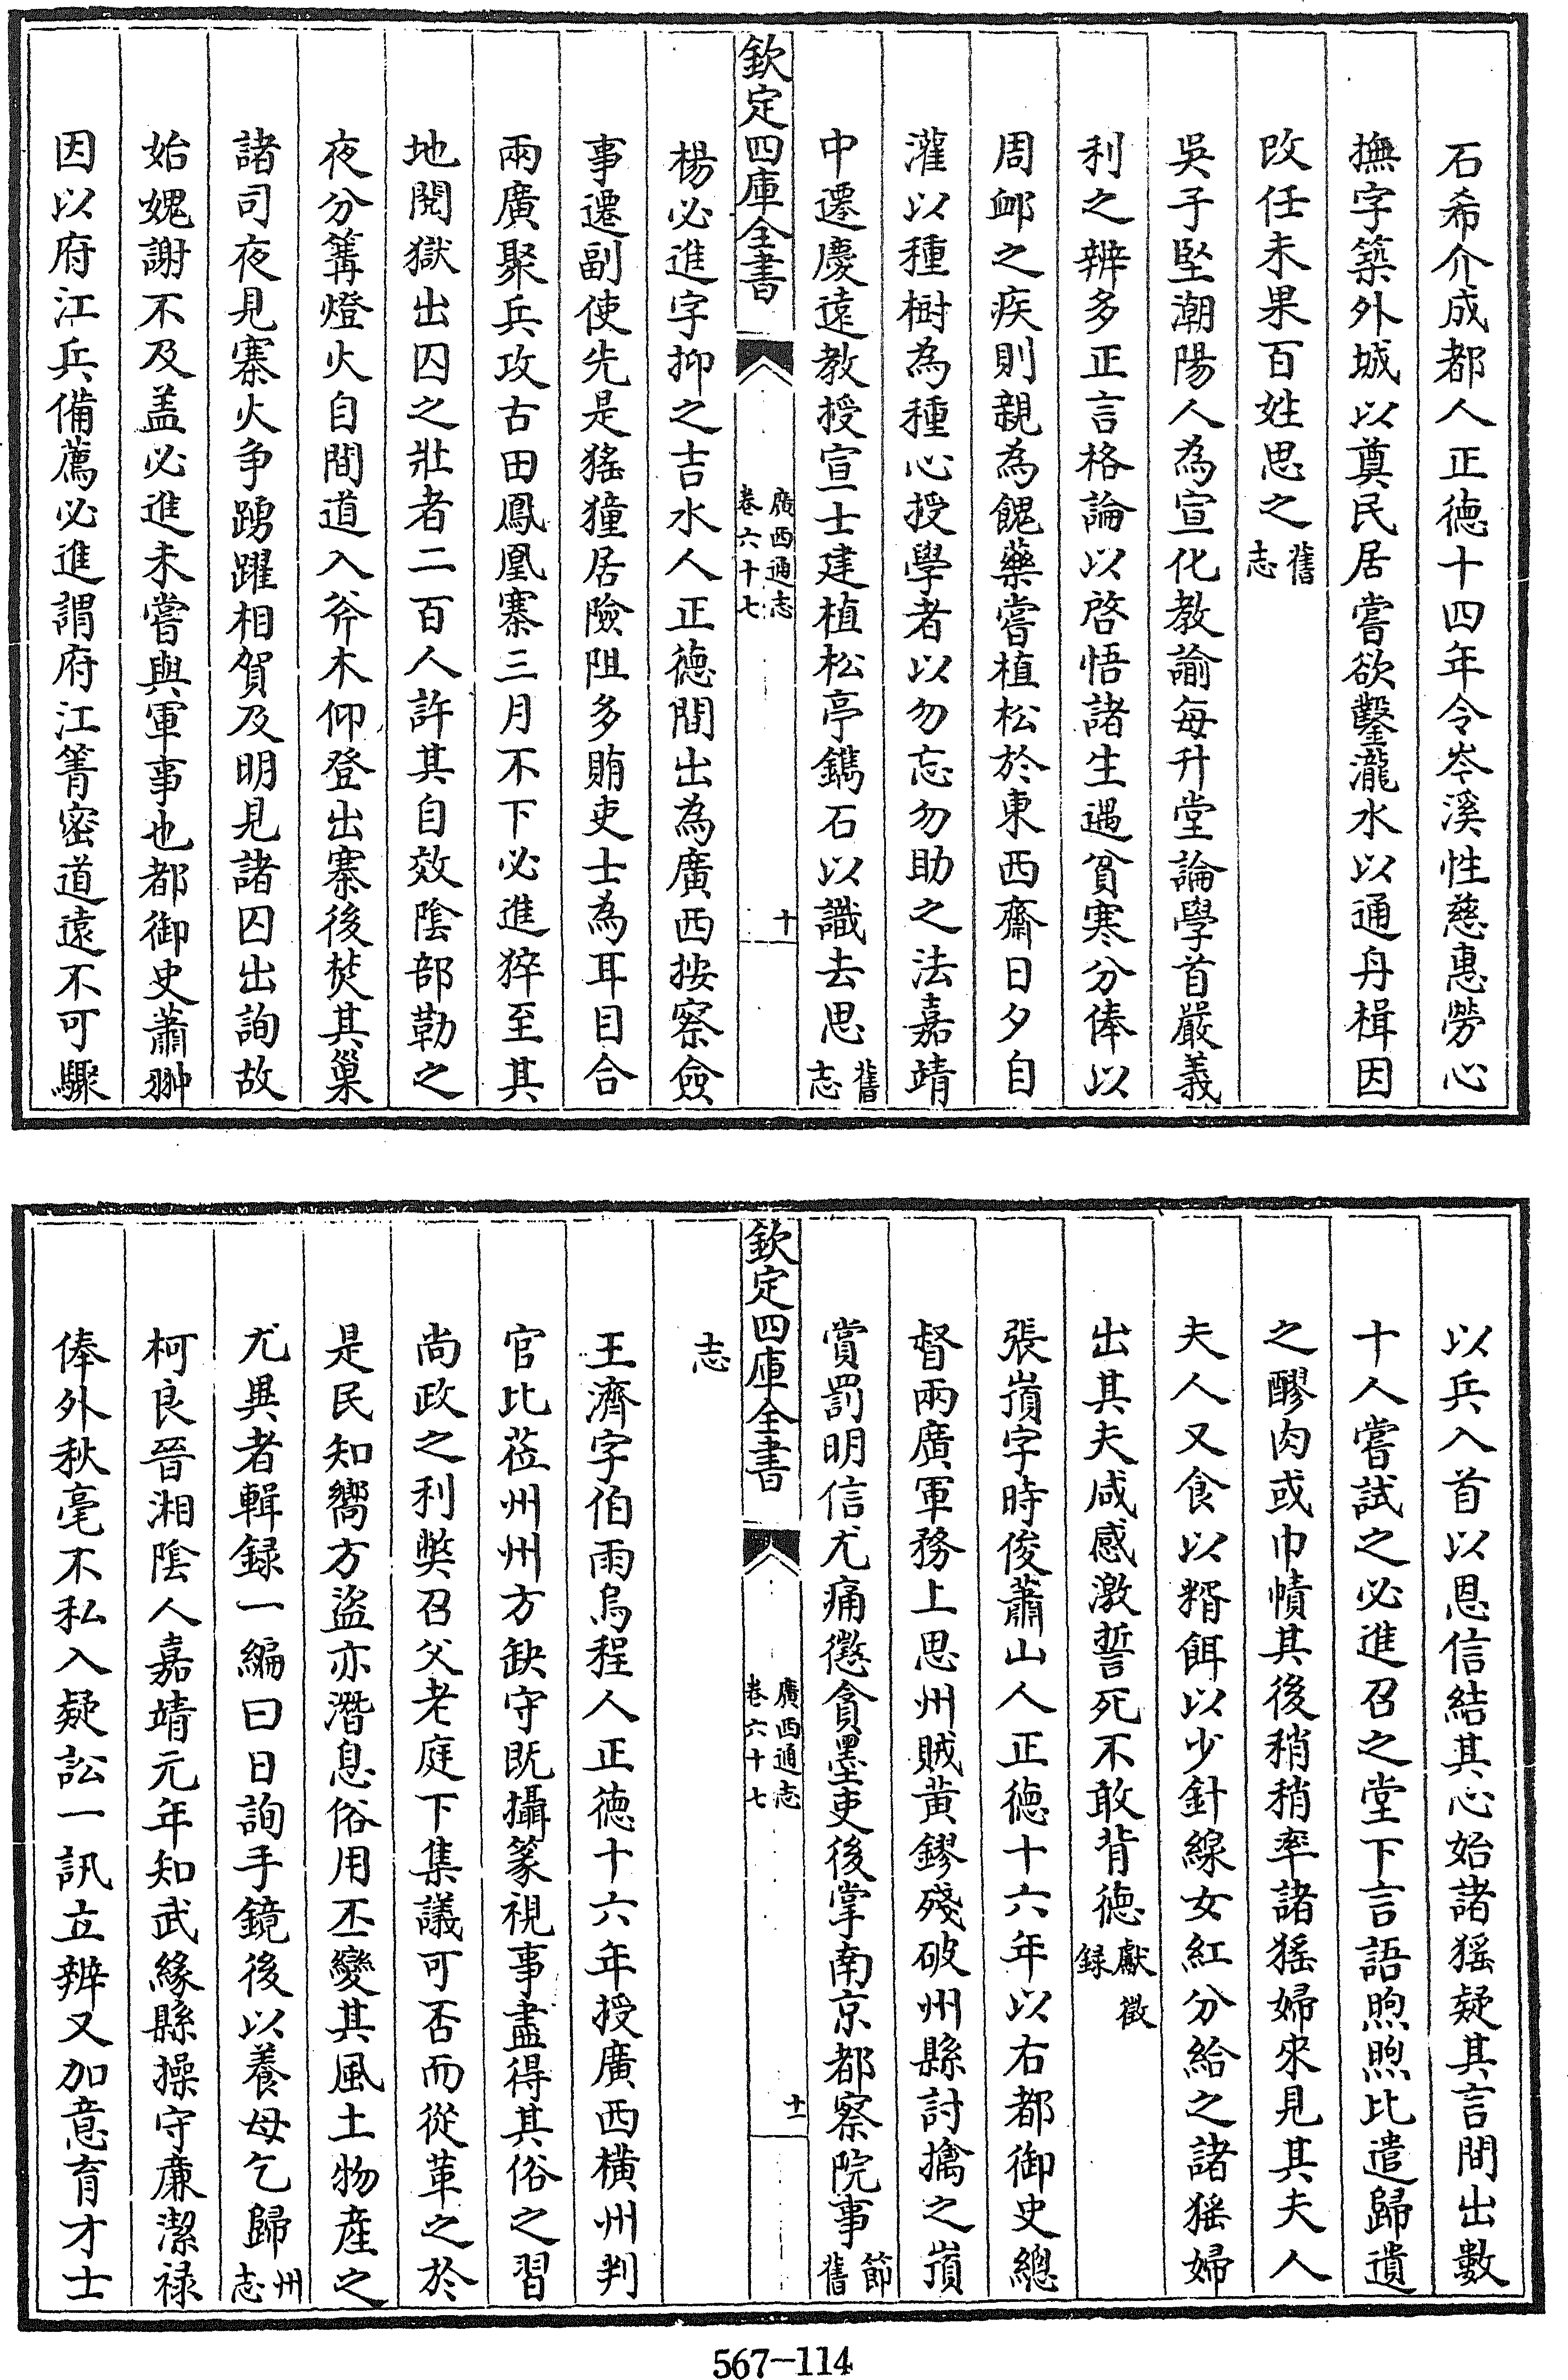 石希介成都人正徳十四年令岑溪性慈惠勞心
撫字築外城以奠民居嘗欲鑿瀧水以通舟楫因
改任未果百姓思之舊志
吳子堅潮陽人為宣化教諭每升堂論學首嚴義
利之辨多正言格論以啓悟諸生遇貧寒分俸以
周䘏之疾則親為餽藥嘗植松於東西齋日夕自
灌以種樹為種心授學者以勿忘勿助之法嘉靖
中遷慶遠教授宣士建植松亭鐫石以識去思舊志
欽定四庫全書
廣西通志
卷六十七
十
楊必進字抑之吉水人正徳間出為廣西按察僉
事遷副使先是猺獞居險阻多賄吏士為耳目合
兩廣聚兵攻古田鳳凰寨三月不下必進猝至其
地閱獄出囚之壯者二百人許其自效陰部勒之
夜分篝燈火自間道入斧木仰登出寨後焚其巢
諸司夜見寨火争踴躍相賀及明見諸囚出詢故
始媿謝不及盖必進未嘗與軍事也都御史蕭翀
因以府江兵備薦必進謂府江箐密道遠不可驟
以兵入首以恩信結其心始諸猺疑其言間出數
十人嘗試之必進召之堂下言語煦煦比遣歸遺
之醪肉或巾幘其後稍稍率諸猺婦來見其夫人
夫人又食以糈餌以少針線女紅分給之諸猺婦
出其夫咸感激誓死不敢背徳獻徵録
張嵿字時俊蕭山人正徳十六年以右都御史總
督兩廣軍務上思州賊黄鏐殘破州縣討擒之嵿
賞罰明信尤痛懲貪墨吏後掌南京都察院事節舊
欽定四庫全書
廣西通志
卷六十七
十一
志
王濟字伯雨烏程人正徳十六年授廣西横州判
官比莅州州方缺守既攝篆視事盡得其俗之習
尚政之利弊召父老庭下集議可否而從革之於
是民知嚮方盜亦潛息俗用丕變其風土物産之
尤異者輯録一編曰日詢手鏡後以養母乞歸州志
柯良晉湘陰人嘉靖元年知武緣縣操守廉潔禄
俸外秋毫不私入疑訟一訊立辨又加意育才士
567-114